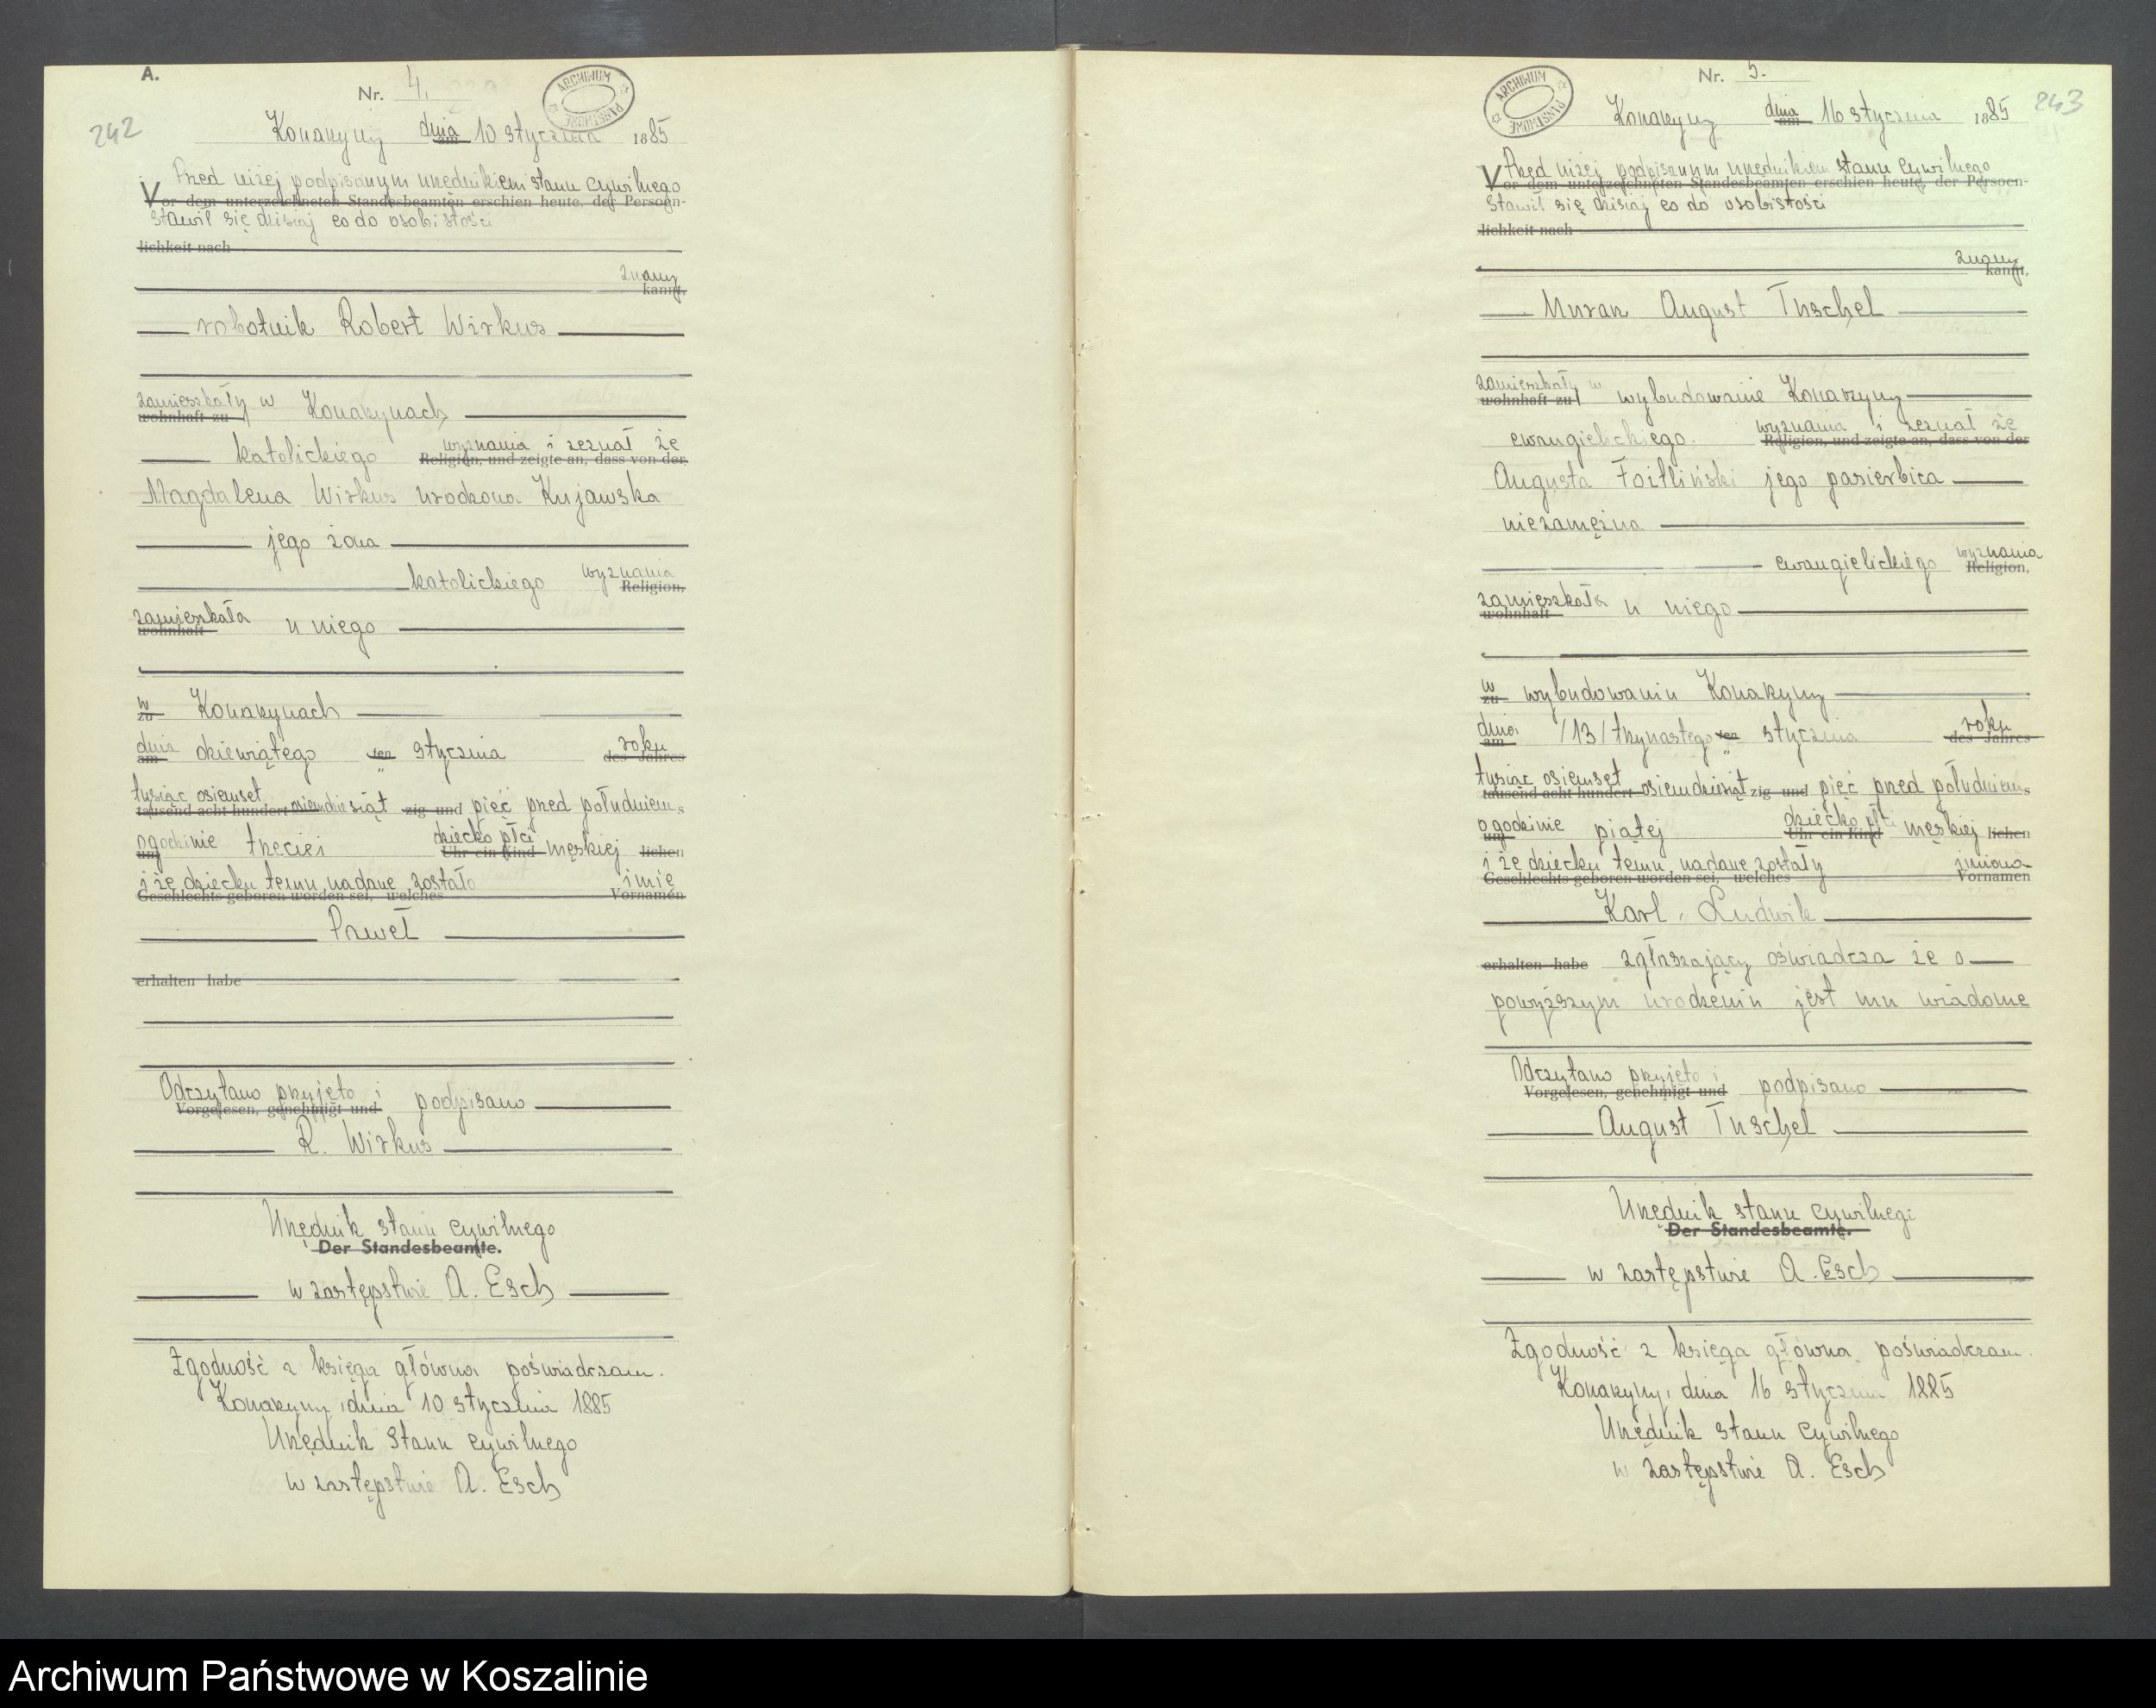 A.
Nr. 4.
ARCHIWUM PAŃSTWOWE
242
Konarzyny dnia am 10 stycznia 1885
Przed niżej podpisanym urzędnikiem stanu cywilnego
Vor dem unterzeichneten Standesbeamten erschien heute, der Persoen-
stawił się dzisiaj co do osobistości
lichkeit nach
znany
kannt,
robotnik Robert Wirkus
zamieszkały w Konarzynach
wohnhaft zu
katolickiego wyznania i zeznał że
Religion, und zeigte an, dass von der
Magdalena Wirkus urodzona Kujawska
jego żona
katolickiego wyznania
Religion,
zamieszkała u niego
wohnhaft
w
zu Konarzynach
dnia dziewiątego ten stycznia roku
am des Jahres
tysiąc osiemset
tausend acht hundert osiemdziesiąt zig und pięć przed południem s
o godzinie trzeciej dziecko płci męskiej lichen
um Uhr ein Kind
i że dziecku temu nadane zostało imię
Geschlechts geboren worden sei, welches Vornamen
Paweł
erhalten habe
Odczytano przyjęto i podpisano
Vorgelesen, genehmigt und
R. Wirkus
Urzędnik stanu cywilnego
Der Standesbeamte.
w zastępstwie A. Esch
Zgodność z księgą główną poświadczam.
Konarzyny, dnia 10 stycznia 1885
Urzędnik stanu cywilnego
w zastępstwie A. Esch
Nr. 5.
ARCHIWUM PAŃSTWOWE
243
Konarzyny dnia am 16 stycznia 1885
Przed niżej podpisanym urzędnikiem stanu cywilnego
Vor dem unterzeichneten Standesbeamten erschien heute, der Persoen-
stawił się dzisiaj co do osobistości
lichkeit nach
znany
kannt,
Murarz August Tuschel
zamieszkały w wybudowanie Konarzyny
wohnhaft zu
ewangielickiego. wyznania i zeznał że
Religion, und zeigte an, dass von der
Augusta Foitliński jego pasierbica
niezamężna
ewangielickiego wyznania
Religion,
zamieszkała u niego
wohnhaft
w
zu wybudowaniu Konarzyny
dnia /13/ trzynastego ten stycznia roku
am des Jahres
tysiąc osiemset
tausend acht hundert osiemdziesiąt zig und pięć przed południem s
o godzinie piątej dziecko płci męskiej lichen
um Uhr ein Kind
i że dziecku temu nadane zostały imiona
Geschlechts geboren worden sei, welches Vornamen
Karl, Ludwik
erhalten habe zgłaszający oświadcza że o
powyższym urodzeniu jest mu wiadome
Odczytano przyjęto i podpisano
Vorgelesen, genehmigt und
August Tuschel
Urzędnik stanu cywilnego
Der Standesbeamte.
w zastępstwie A. Esch
Zgodność z księgą główną poświadczam.
Konarzyny, dnia 16 stycznia 1885
Urzędnik stanu cywilnego
w zastępstwie A. Esch
Archiwum Państwowe w Koszalinie